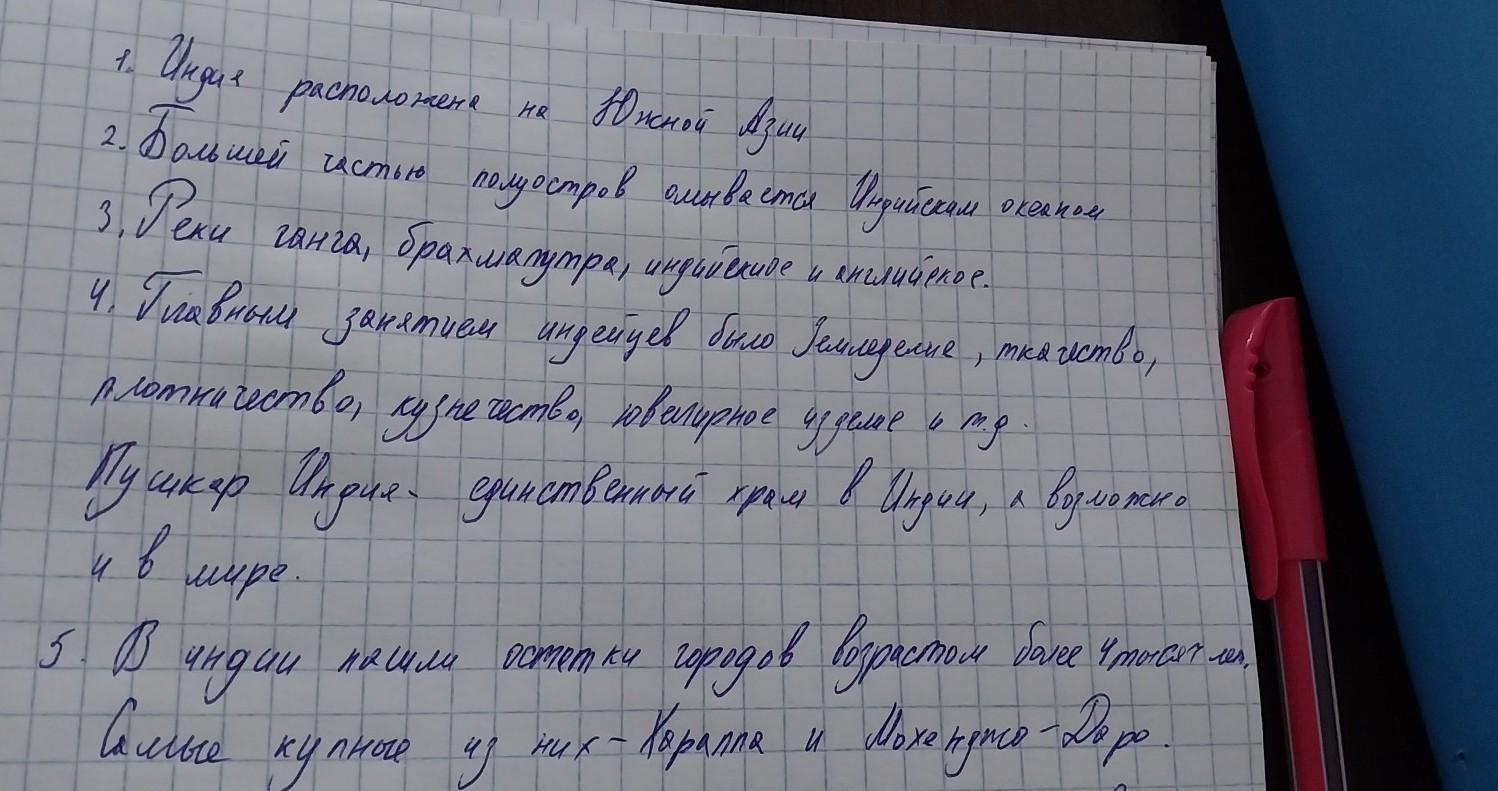 1. Индия расположена на Южной Азии
2. Большей частью полуостров омывается Индийским океаном
3. Реки ганга, брахмапутра, индийское и английское.
4. Главным занятием индейцев было Земледелие, ткачество,
плотничество, кузнечество, ювелирное изделие и т.д.
Пушкар Индия- единственный храм в Индии, а возможно
и в мире.
5. В индии нашли остетки городов возрастом более 4 тысяч лет.
Самые купные из них - Хараппа и Мохенджо-Даро.